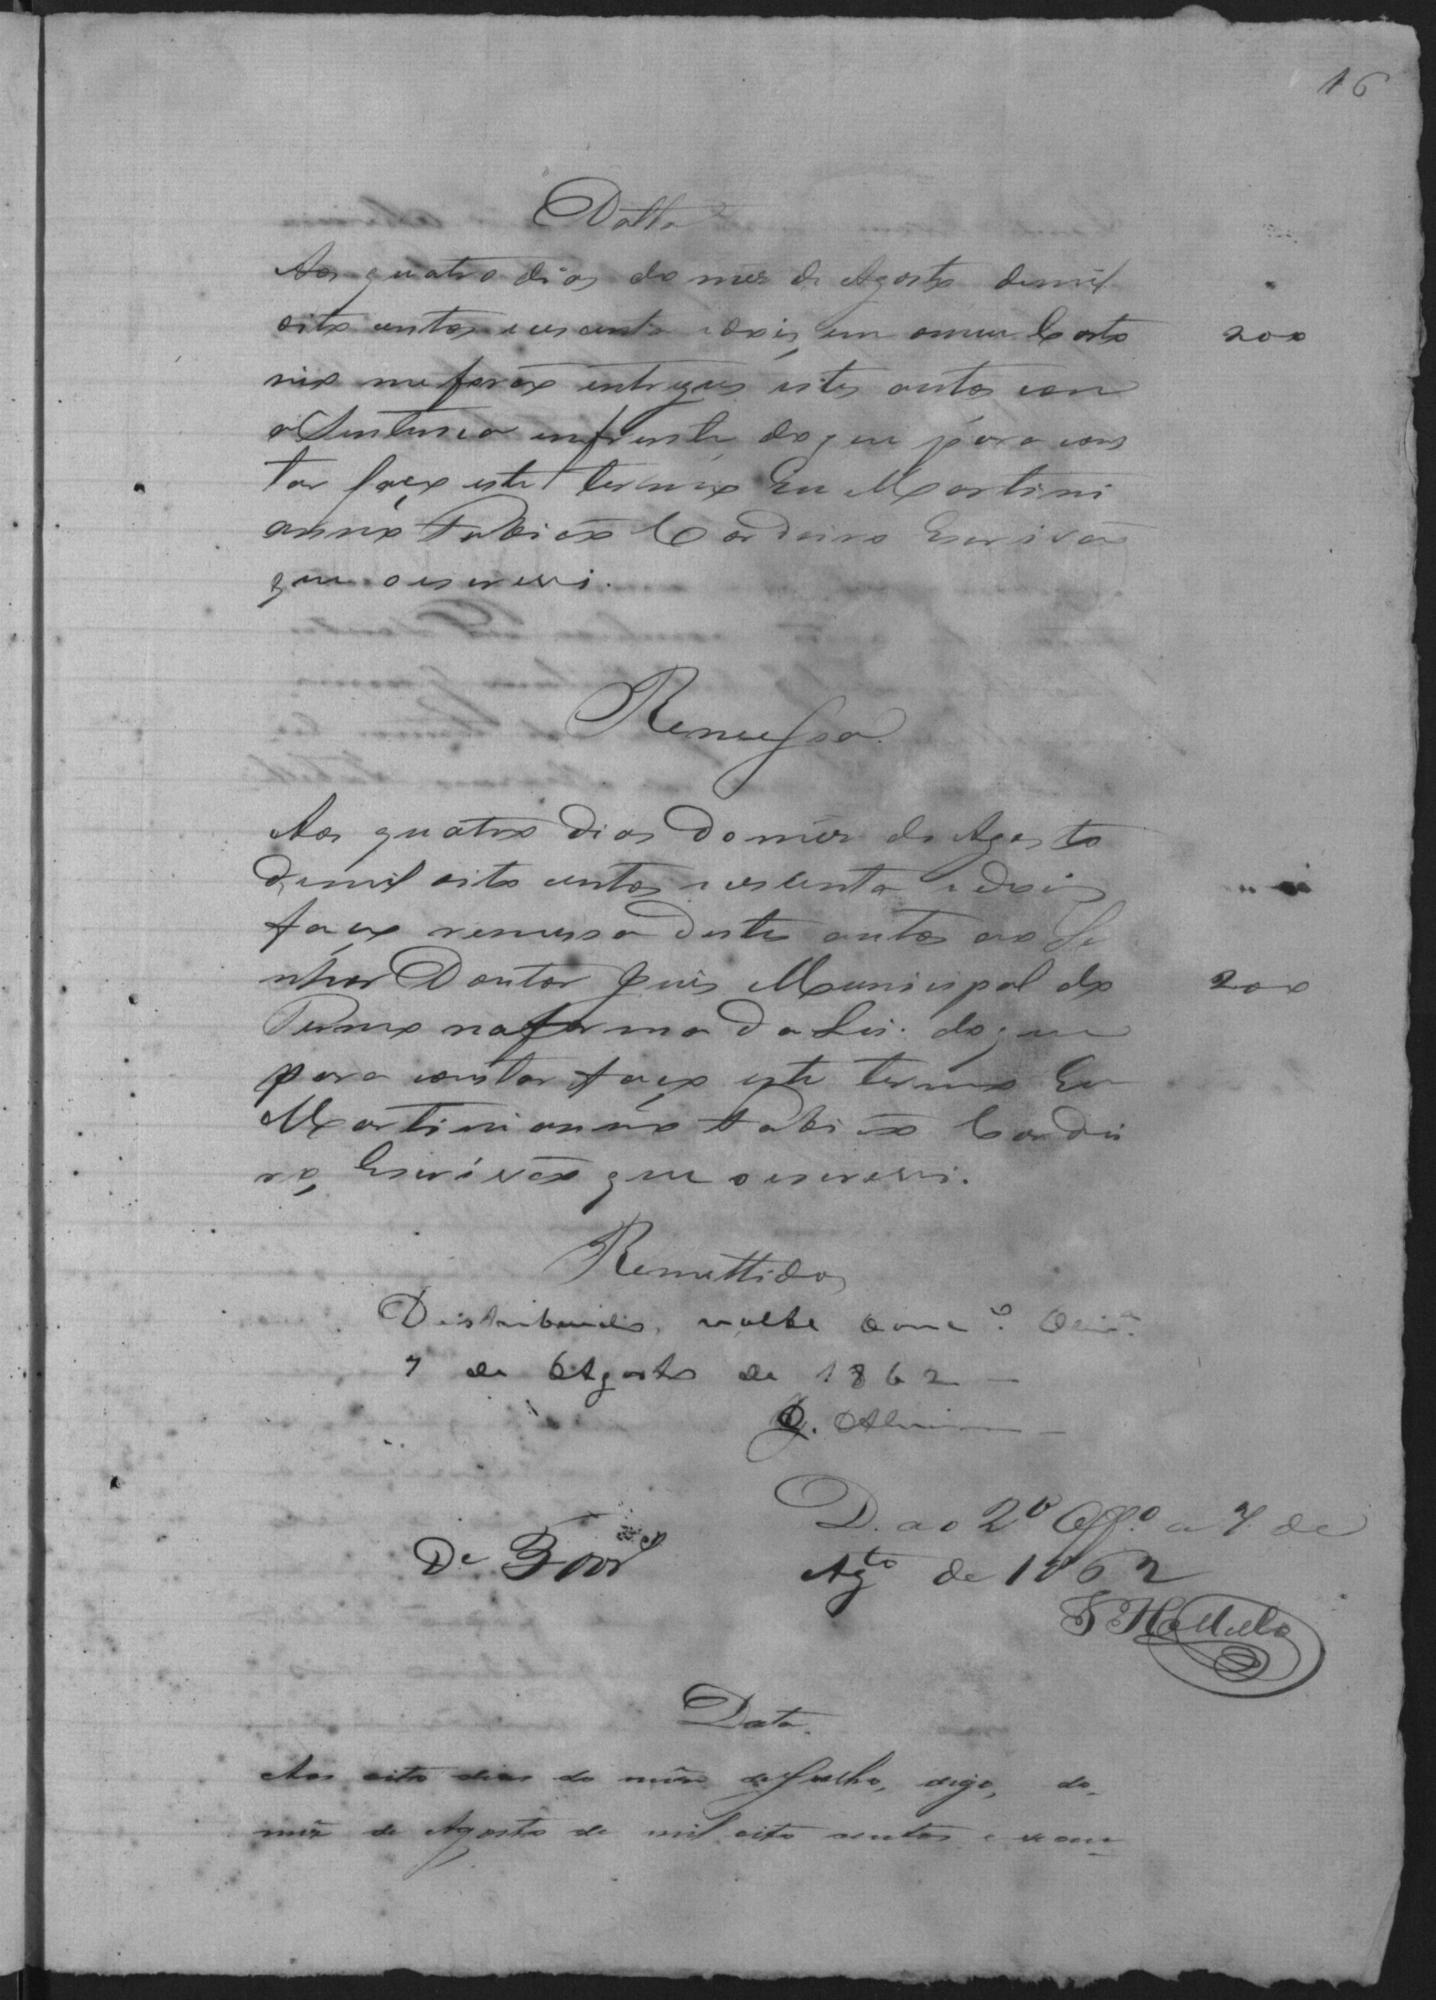 16
Datta
Aos quatro dias do mes de Agosto demil
oito centos e cecenta e dois, em omeu Carto
rio me forão entregues estes autos com
a Sentença enfrente, doque para cons
tar faço este termo Eu Martini
anno Fabião Cordeiro Escrivão
que o escrevi.
200
Remessa
Aos quatro dias do mes de Agosto
demil oito centos e cecenta e dois
faço remessa destes autos ao Se
nhor Doutor Juis Municipal do
Termo na forma da Lei. doque
para constar faço este termo Eu
Martinianno Fabião Cordei
ro, Escrivão que o escrevi.
200
Remettidos
Distribuido, volte
7 de Agosto de 1862
D. ao 2º Offº a 7 de
Agto de 1862
De
Data.
Aos oito dias do mês de Julho, digo, do
mês de Agosto de mil oito centos e secen